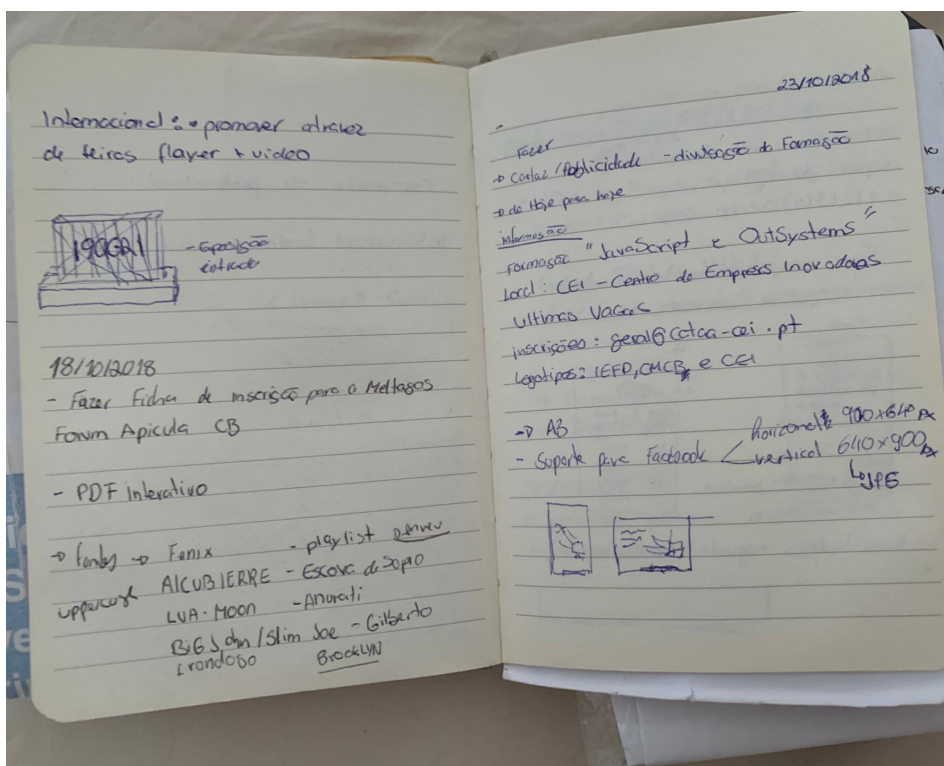 Internacional: • promover atravez
de feiras flayer + video
- Exposição
entrada
18/10/2018
- Fazer Ficha de inscrição para o
Forum Apicula CB
- PDF interativo
→ fontes → Fenix - playlist
uppercase AlCUBIERRE - Escova de
LUA-MOON - Anurati
BiG John / Slim Joe - Gilberto
BrooklYN
23/10/2018
Fazer
→ Cartaz / Publicidade - divulgação da Formação
→ de Hoje para hoje
informação
Formação "JavaScript e OutSystems"
Local: CEI - Centro de Empresas Inovadoras
Ultimas Vagas
inscrições: geral@cataa-cei.pt
Logotipos: IEFP, CMCB, e CEI
→ A3
- Suporte para Facebook horizontal 900x640 px
vertical 640x900 px
↳ JPG